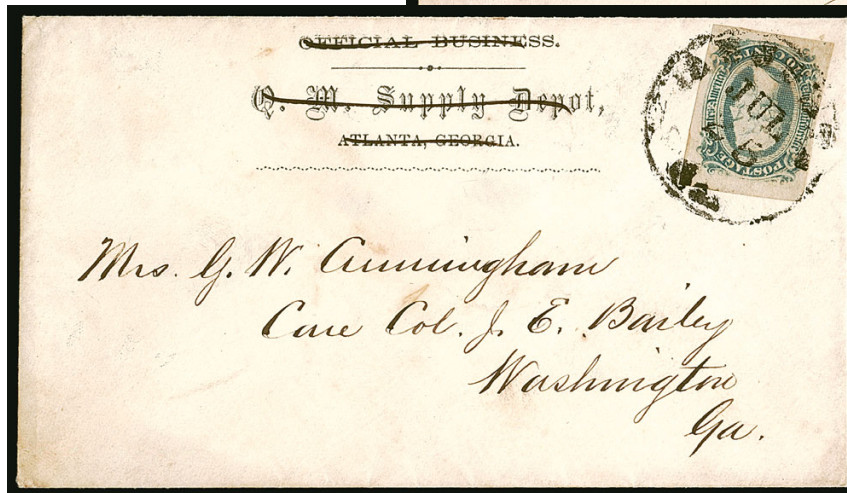 OFFICIAL BUSINESS.
Q. M. Supply Depot,
ATLANTA, GEORGIA.
JUL
5
POSTAGE
Mrs. G. W. Cunningham
Care Col. J. E. Bailey
Washington
Ga.